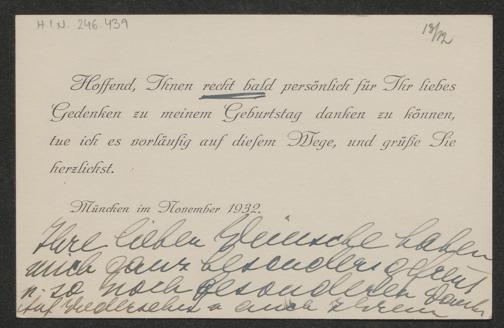 H.I.N. 246.439
18/12
Hoffend, Ihnen recht bald persönlich für Ihr liebes
Gedenken zu meinem Geburtstag danken zu können,
tue ich es vorläufig auf diesem Wege, und grüße Sie
herzlichst.
München im November 1932.
Ihre lieben Wünsche haben
mich ganz besonders gefreut
u. so noch besonderen Dank
Auf Wiedersehen u. auch Ihrem